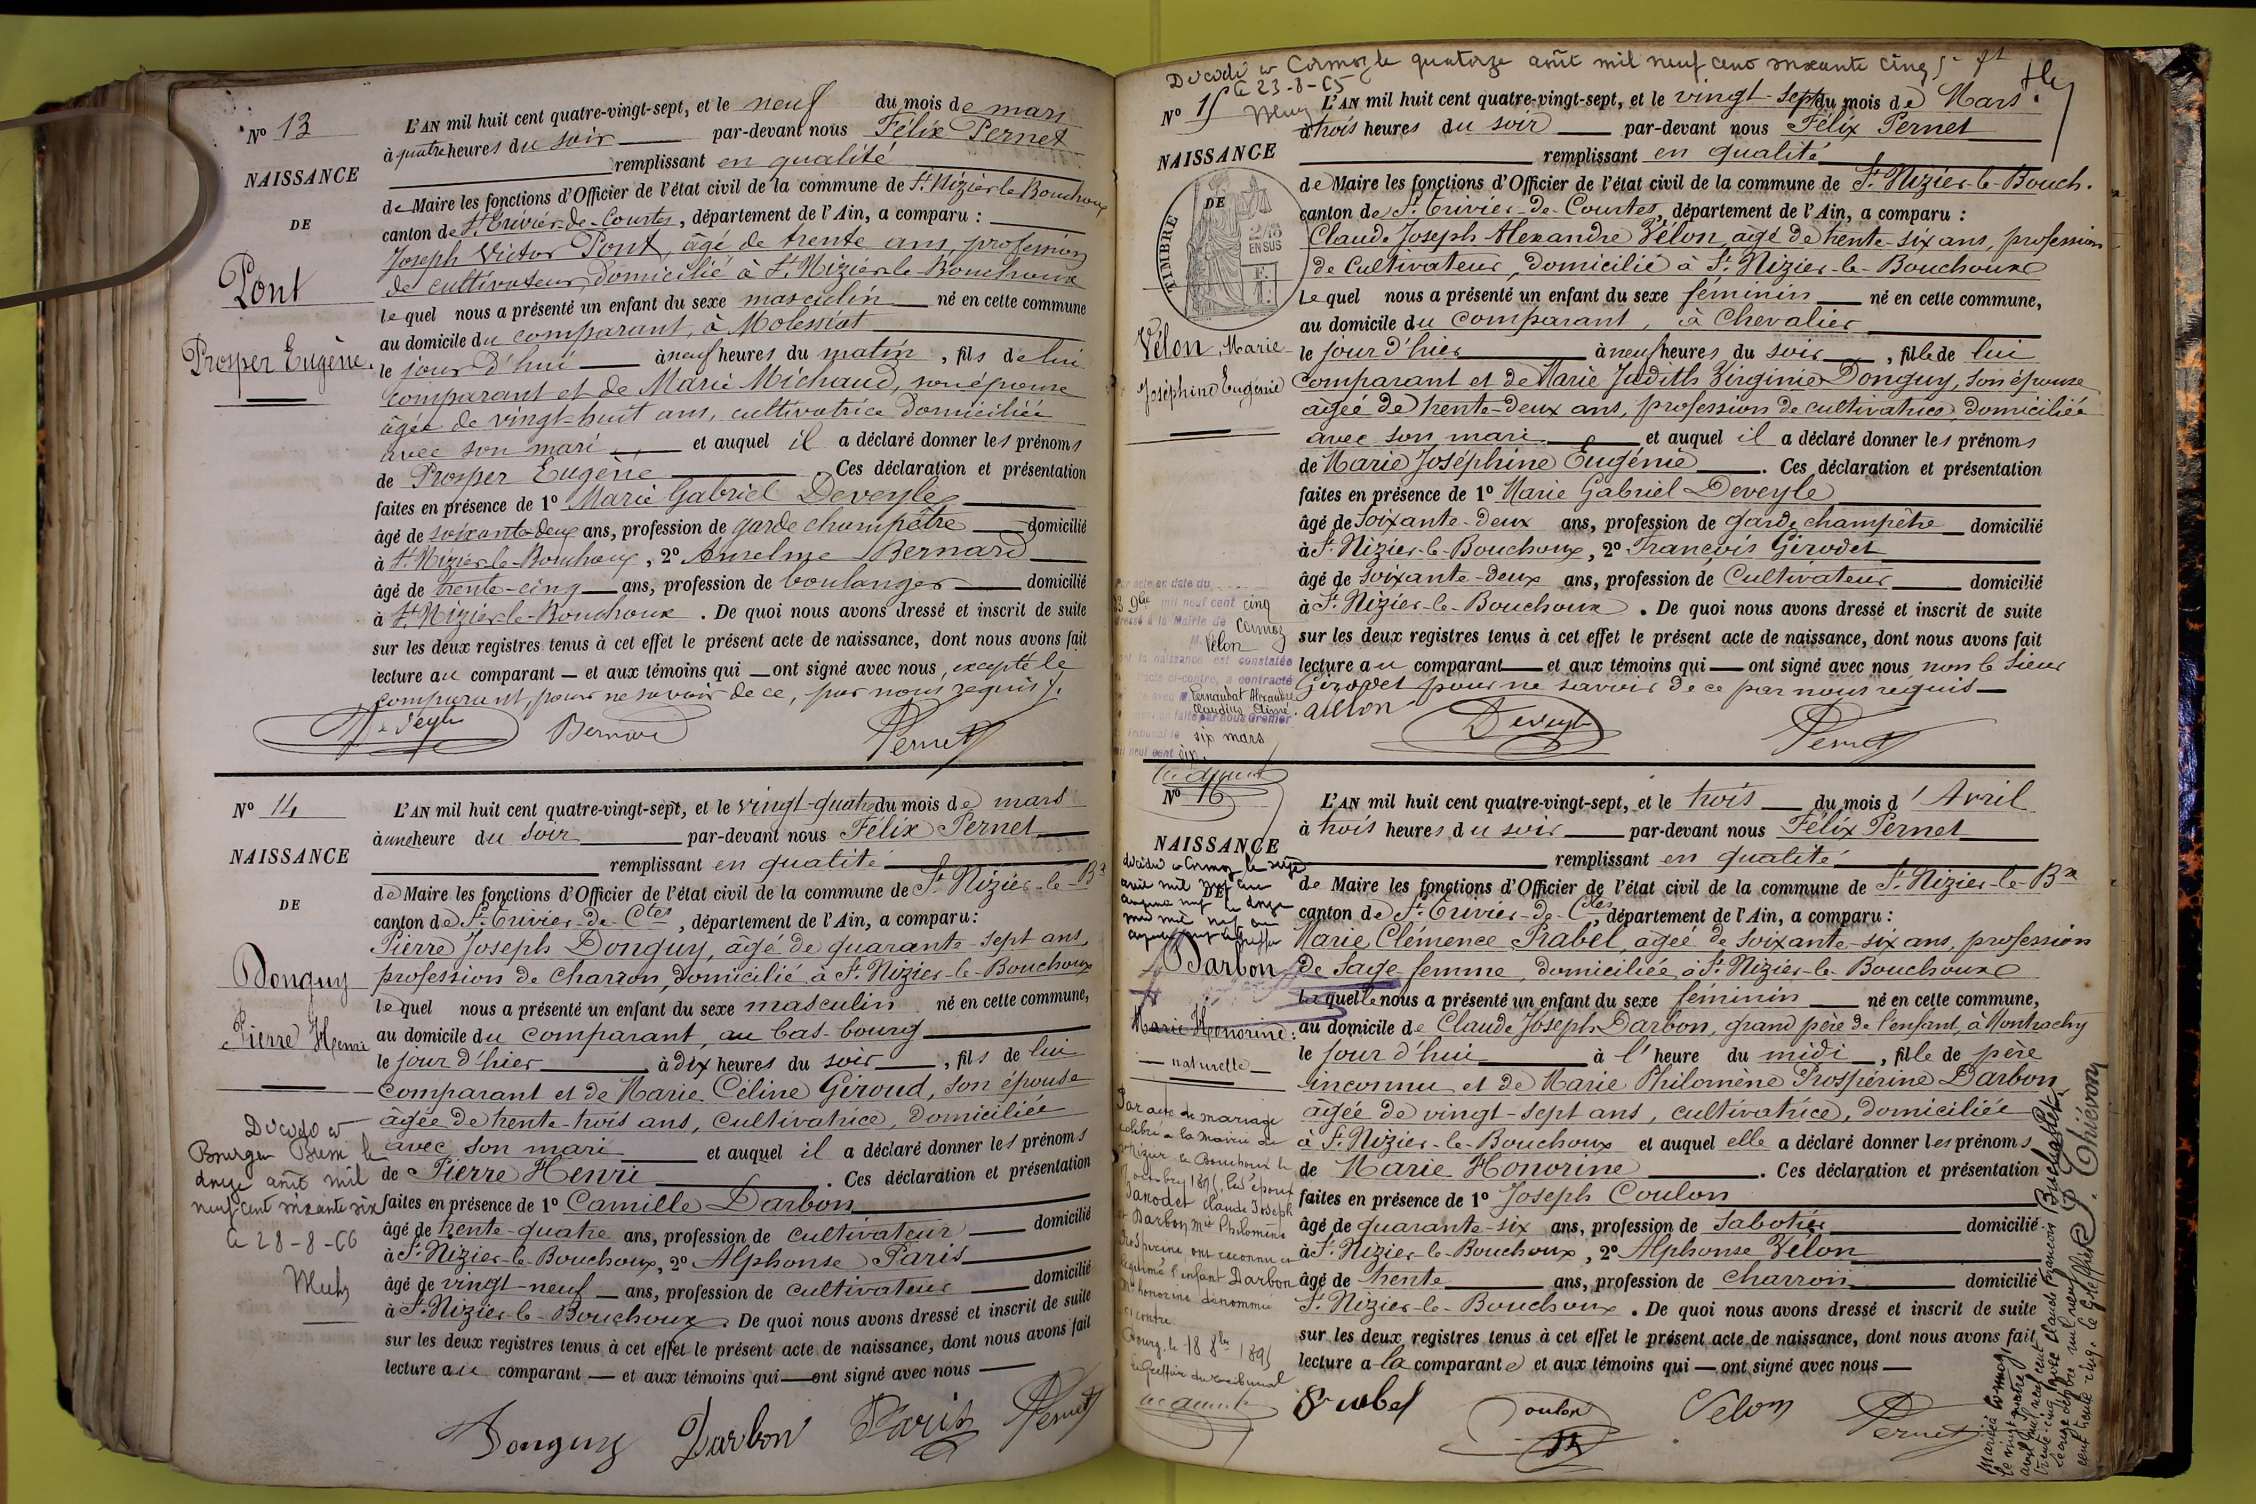 N° 13
NAISSANCE
DE
Pont
Prosper Eugène.
L'AN mil huit cent quatre-vingt-sept, et le neuf du mois de mars
à quatre heures du soir par-devant nous Félix Pernet
remplissant en qualité
de Maire les fonctions d'Officier de l'état civil de la commune de St Nizier-le-Bouchoux
canton de St Trivier-de-Courtes, département de l'Ain, a comparu :
Joseph Victor Pont, âgé de trente ans, profession
de cultivateur, domicilié à St Nizier-le-Bouchoux
lequel nous a présenté un enfant du sexe masculin né en cette commune
au domicile du comparant, à Molessiat
le jour d'hui à neuf heures du matin, fils de lui
comparant et de Marie Michaud, son épouse
âgée de vingt-huit ans, cultivatrice domiciliée
avec son mari et auquel il a déclaré donner les prénoms
de Prosper Eugène. Ces déclaration et présentation
faites en présence de 1° Marie Gabriel Deveyle
âgé de soixante-deux ans, profession de garde champêtre domicilié
à St Nizier-le-Bouchoux, 2° Anselme Bernard
âgé de trente-cinq ans, profession de boulanger domicilié
à St Nizier-le-Bouchoux. De quoi nous avons dressé et inscrit de suite
sur les deux registres tenus à cet effet le présent acte de naissance, dont nous avons fait
lecture au comparant et aux témoins qui ont signé avec nous, excepté le
comparant, pour ne savoir de ce, par nous requis.
Deveyle Bernard Pernet
N° 14
NAISSANCE
DE
Donguy
Pierre Henri
Décédé à
Bourg en Bresse le
douze août mil
neuf cent soixante six
le 28-8-66
L'AN mil huit cent quatre-vingt-sept, et le vingt-quatre du mois de mars
à une heure du soir par-devant nous Félix Pernet
remplissant en qualité
de Maire les fonctions d'Officier de l'état civil de la commune de St Nizier-le-Bx
canton de St Trivier-de-Ctes, département de l'Ain, a comparu :
Pierre Joseph Donguy, âgé de quarante-sept ans,
profession de charron, domicilié à St Nizier-le-Bouchoux
lequel nous a présenté un enfant du sexe masculin né en cette commune,
au domicile du comparant, au bas-bourg
le jour d'hier à dix heures du soir, fils de lui
comparant et de Marie Céline Giroud, son épouse
âgée de trente-trois ans, cultivatrice, domiciliée
avec son mari et auquel il a déclaré donner les prénoms
de Pierre Henri. Ces déclaration et présentation
faites en présence de 1° Camille Darbon
âgé de trente-quatre ans, profession de cultivateur domicilié
à St Nizier-le-Bouchoux, 2° Alphonse Paris
âgé de vingt-neuf ans, profession de cultivateur domicilié
à St Nizier-le-Bouchoux. De quoi nous avons dressé et inscrit de suite
sur les deux registres tenus à cet effet le présent acte de naissance, dont nous avons fait
lecture au comparant et aux témoins qui ont signé avec nous
Donguy Darbon Paris Pernet
Décédée à Cormoz le quatorze août mil neuf cent soixante cinq
le 23-8-65
N° 15
NAISSANCE
DE
TIMBRE
2/10
EN SUS
Vélon, Marie
Joséphine Eugénie
L'AN mil huit cent quatre-vingt-sept, et le vingt-sept du mois de Mars
à trois heures du soir par-devant nous Félix Pernet
remplissant en qualité
de Maire les fonctions d'Officier de l'état civil de la commune de St Nizier-le-Bouch.
canton de St Trivier-de-Courtes, département de l'Ain, a comparu :
Claude Joseph Alexandre Vélon, âgé de trente-six ans, profession
de cultivateur, domicilié à St Nizier-le-Bouchoux
lequel nous a présenté un enfant du sexe féminin né en cette commune,
au domicile du comparant, à Chevalier
le jour d'hier à neuf heures du soir, fille de lui
comparant et de Marie Judith Virginie Donguy, son épouse
âgée de trente-deux ans, profession de cultivatrice, domiciliée
avec son mari et auquel il a déclaré donner les prénoms
de Marie Joséphine Eugénie. Ces déclaration et présentation
faites en présence de 1° Marie Gabriel Deveyle
âgé de soixante-deux ans, profession de garde champêtre domicilié
à St Nizier-le-Bouchoux, 2° François Girodet
âgé de soixante-deux ans, profession de cultivateur domicilié
à St Nizier-le-Bouchoux. De quoi nous avons dressé et inscrit de suite
sur les deux registres tenus à cet effet le présent acte de naissance, dont nous avons fait
lecture au comparant et aux témoins qui ont signé avec nous non le sieur
Girodet pour ne savoir de ce par nous requis
Deveyle Pernet
acte en date du
9bre mil neuf cent cinq
à la Mairie de Cormoz
Vélon
la naissance est constatée
ci-contre, a contracté
avec M. Pernaubat Alexandre
Claudius
faite par nous Greffier
six mars
neuf cent six
N° 16
NAISSANCE
décédée à Cormoz le seize
avril mil neuf cent
cinquante neuf le douze
mai mil neuf cent
cinquante neuf le Greffier
Darbon
Marie Honorine :
naturelle
L'AN mil huit cent quatre-vingt-sept, et le trois du mois d'Avril
à trois heures du soir par-devant nous Félix Pernet
remplissant en qualité
de Maire les fonctions d'Officier de l'état civil de la commune de St Nizier-le-Bx
canton de St Trivier-de-Ctes, département de l'Ain, a comparu :
Marie Clémence Prabel, âgée de soixante-six ans, profession
de sage femme, domiciliée à St Nizier-le-Bouchoux
laquelle nous a présenté un enfant du sexe féminin né en cette commune,
au domicile de Claude Joseph Darbon, grand père de l'enfant, à Montrachy
le jour d'hui à l'heure du midi, fille de père
inconnu et de Marie Philomène Prospérine Darbon
âgée de vingt-sept ans, cultivatrice, domiciliée
à St Nizier-le-Bouchoux et auquel elle a déclaré donner les prénoms
de Marie Honorine. Ces déclaration et présentation
faites en présence de 1° Joseph Coulon
âgé de quarante-six ans, profession de sabotier domicilié
à St Nizier-le-Bouchoux, 2° Alphonse Vélon
âgé de trente ans, profession de charron domicilié
St Nizier-le-Bouchoux. De quoi nous avons dressé et inscrit de suite
sur les deux registres tenus à cet effet le présent acte de naissance, dont nous avons fait
lecture a la comparante et aux témoins qui ont signé avec nous
Prabel Coulon Vélon Pernet
Par acte de mariage
célébré à la mairie de
St Nizier le Bouchoux le
octobre 1895, les époux
Janodet Claude Joseph
et Darbon Mie Philomène
Prospérine ont reconnu et
légitimé l'enfant Darbon
Mie honorine dénommée
ci contre.
Bourg, le 18 8bre 1895
Le Greffier du tribunal
Mariée à Cormoz
le vingt quatre
avril mil neuf cent
trente-cinq avec Claude François Buchaillet
le onze décembre mil neuf
cent trente cinq. le Greffier P. Chiévron